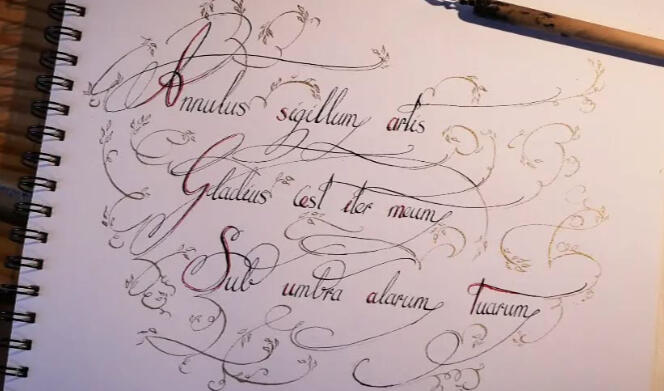 Annulus sigillum artis
Gladius est iter meum
Sub umbra alarum Tuarum